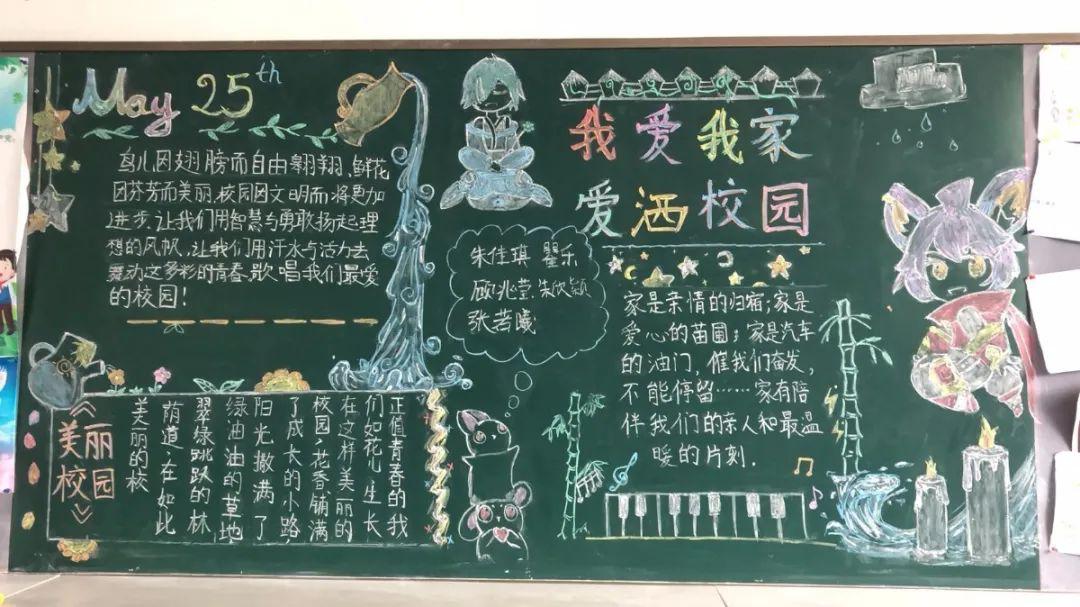 May 25th
鸟儿因翅膀而自由翱翔,鲜花
因芬芳而美丽,校园因文明而将更加
进步.让我们用智慧与勇敢扬起理
想的风帆,让我们用汗水与活力去
舞动这多彩的青春,歌唱我们最爱
的校园!
《美丽
校园》
正值青春的我
们如花儿生长
在这样美丽的
校园,花香铺满
了成长的小路,
阳光撒满了
绿油油的草地
翠绿跳跃的林
荫道,在如此
美丽的校
朱佳琪 瞿乐
顾兆莹 朱欣颖
张若曦
我爱我家
爱洒校园
家是亲情的归宿;家是
爱心的苗圃;家是汽车
的油门,催我们奋发,
不能停留……家有陪
伴我们的亲人和最温
暖的片刻.